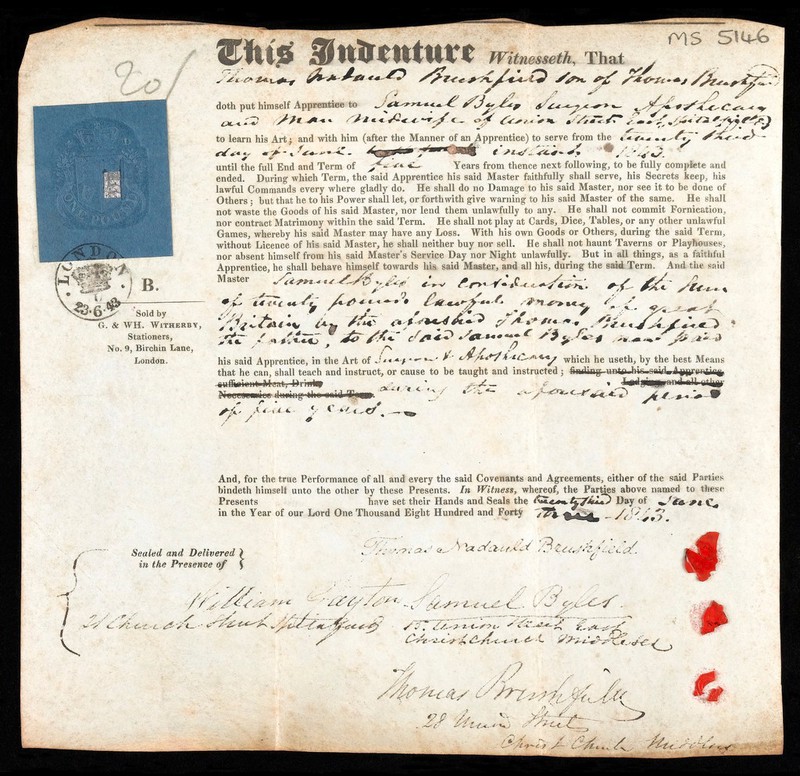 MS 5146
20/
This Indenture Witnesseth, That
Thomas Nadauld Brushfield son of Thomas Brushfield
doth put himself Apprentice to Samuel Byles Surgeon Apothecary
and Man midwife of Union Street East Spitalfields
to learn his Art; and with him (after the Manner of an Apprentice) to serve from the twenty third
day of June instant 1843
until the full End and Term of five Years from thence next following, to be fully complete and
ended. During which Term, the said Apprentice his said Master faithfully shall serve, his Secrets keep, his
lawful Commands every where gladly do. He shall do no Damage to his said Master, nor see it to be done of
Others; but that he to his Power shall let, or forthwith give warning to his said Master of the same. He shall
not waste the Goods of his said Master, nor lend them unlawfully to any. He shall not commit Fornication,
nor contract Matrimony within the said Term. He shall not play at Cards, Dice, Tables, or any other unlawful
Games, whereby his said Master may have any Loss. With his own Goods or Others, during the said Term,
without Licence of his said Master, he shall neither buy nor sell. He shall not haunt Taverns or Playhouses,
nor absent himself from his said Master's Service Day nor Night unlawfully. But in all things, as a faithful
Apprentice, he shall behave himself towards his said Master, and all his, during the said Term. And the said
Master Samuel Byles in consideration of the Sum
of twenty pounds lawful money of great
Britain by the aforesaid Thomas Brushfield
the father, to the said Samuel Byles now paid
his said Apprentice, in the Art of Surgeon & Apothecary which he useth, by the best Means
that he can, shall teach and instruct, or cause to be taught and instructed; finding unto his said Apprentice
sufficient Meat, Drink, Lodging and all other
Necessaries during the said Term during the aforesaid period
of five years.
ONE POUND
LONDON
23·6·43
B.
Sold by
G. & WH. WITHERBY,
Stationers,
No. 9, Birchin Lane,
London.
And, for the true Performance of all and every the said Covenants and Agreements, either of the said Parties
bindeth himself unto the other by these Presents. In Witness, whereof, the Parties above named to these
Presents have set their Hands and Seals the twenty third Day of June
in the Year of our Lord One Thousand Eight Hundred and Forty three 1843.
Sealed and Delivered
in the Presence of
Thomas Nadauld Brushfield.
William Gayton
21 Church Street Spitalfields
Samuel Byles
15 Union Street East
Christchurch Middlesex
Thomas Brushfield
28 Union Street
Christ Church Middlesex